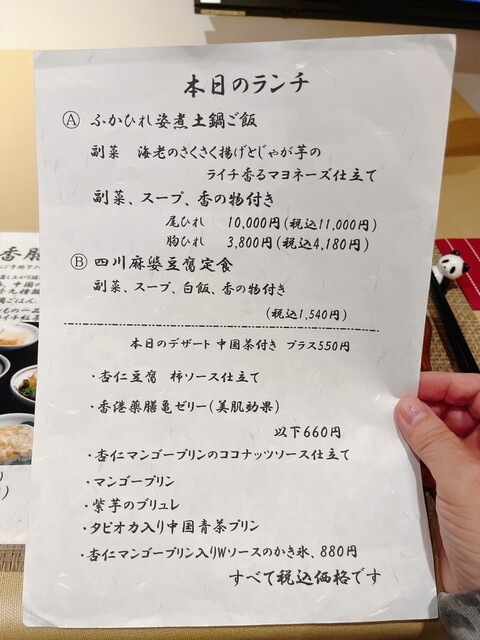 本日のランチ
Ⓐ ふかひれ姿煮土鍋ご飯
副菜 海老のさくさく揚げとじゃが芋の
ライチ香るマヨネーズ仕立て
副菜、スープ、香の物付き
尾ひれ 10,000円(税込11,000円)
胸ひれ 3,800円(税込4,180円)
Ⓑ 四川麻婆豆腐定食
副菜、スープ、白飯、香の物付き
(税込1,540円)
本日のデザート 中国茶付き プラス550円
・杏仁豆腐 柿ソース仕立て
・香港薬膳亀ゼリー(美肌効果)
以下660円
・杏仁マンゴープリンのココナッツソース仕立て
・マンゴープリン
・紫芋のブリュレ
・タピオカ入り中国青茶プリン
・杏仁マンゴープリン入りWソースのかき氷、880円
すべて税込価格です